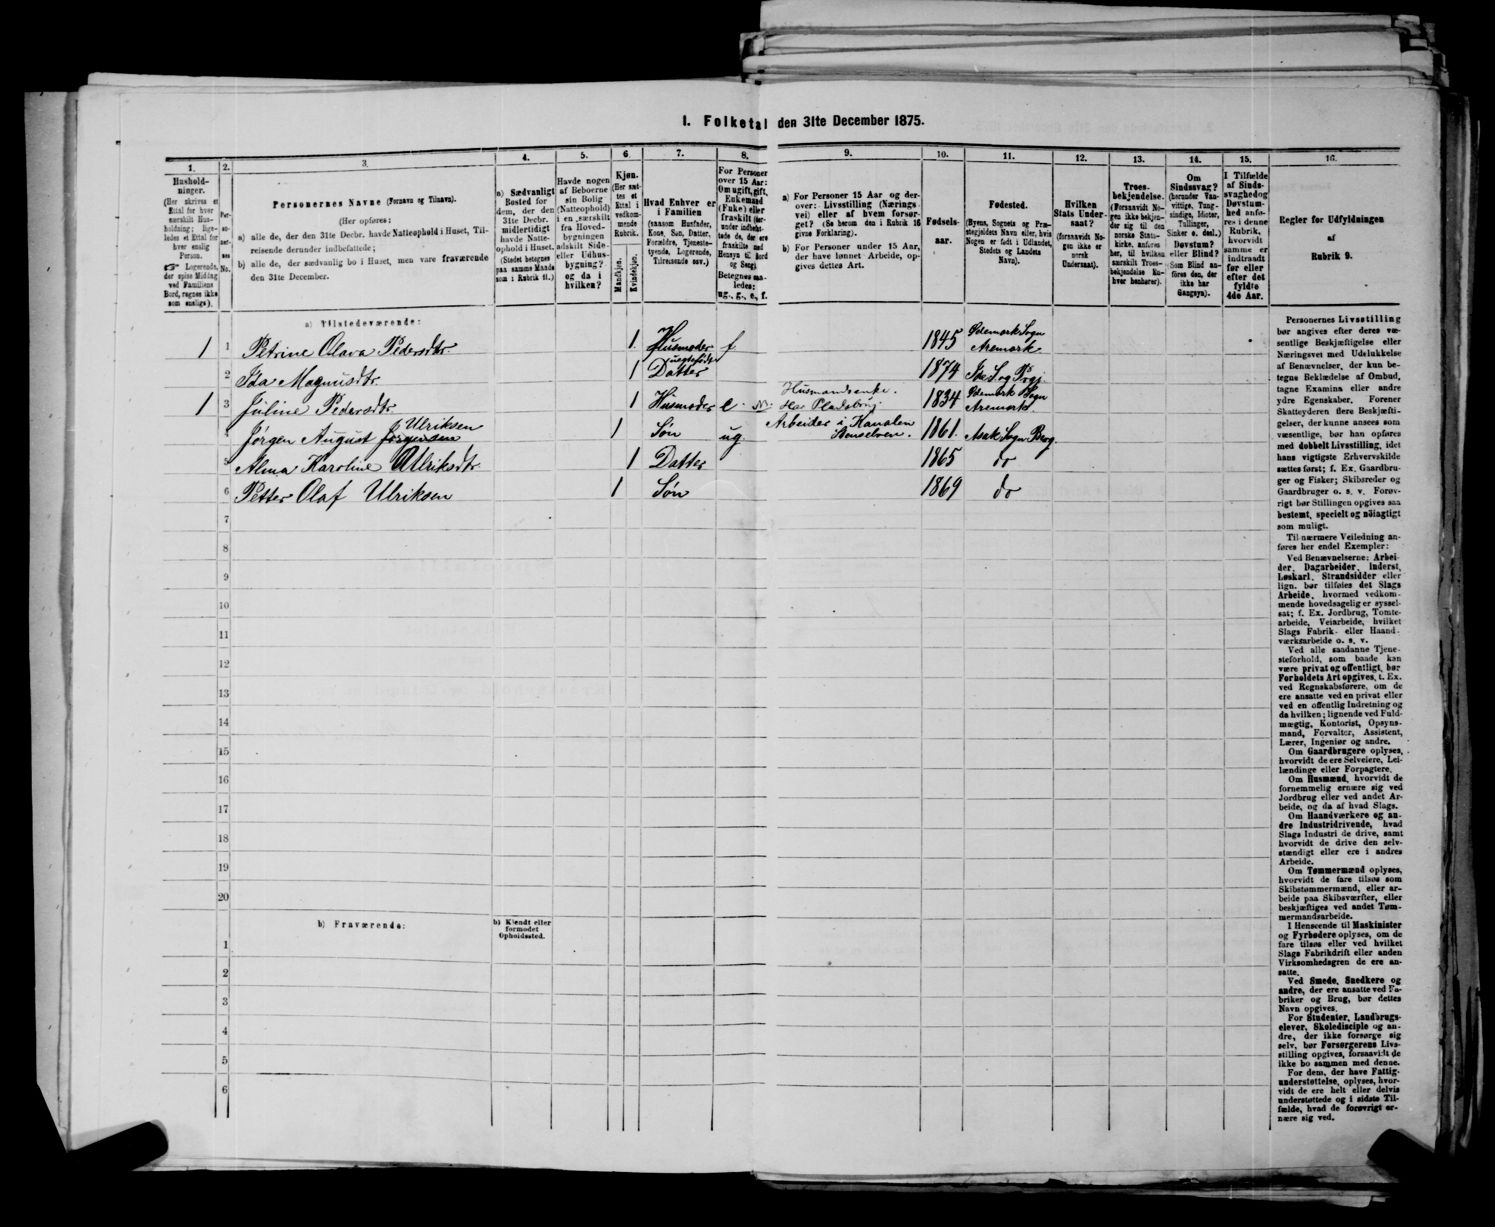 1. Folketal den 31te December 1875.
1.
Hushold-
ninger.
(Her skrives et
Ettal for hver
særskilt Hus-
holdning; lige-
ledes et Ettal for
hver enslig
Person.
☞ Logerende,
der spise Middag
ved Familiens
Bord, regnes ikke
som enslige).
2.
Per-
so-
ner-
nes
No.
3.
Personernes Navne (Fornavn og Tilnavn).
(Her opføres:
a) alle de, der den 31te Decbr. havde Natteophold i Huset, Til-
reisende derunder indbefattede;
b) alle de, der sædvanlig bo i Huset, men vare fraværende
den 31te December.
4.
a) Sædvanligt
Bosted for
dem, der den
31te Decbr.
midlertidigt
havde Natte-
ophold i Huset.
(Stedet betegnes
paa samme Maade
som i Rubrik 11.)
5.
Havde nogen
af Beboerne
sin Bolig
(Natteophold)
i en særskilt
fra Hoved-
bygningen
adskilt Side-
eller Udhus-
bygning?
og da i
hvilken?
6.
Kjøn.
(Her sæt-
tes et
Ettal i
vedkom-
mende
Rubrik.
Mandkjøn.
Kvindekjøn.
7.
Hvad Enhver er
i Familien
(saasom Husfader,
Kone, Søn, Datter,
Forældre, Tjeneste-
tyende, Logerende,
Tilreisende osv.)
8.
For Personer
over 15 Aar:
Om ugift, gift,
Enkemand
(Enke) eller
fraskilt
Betegnes saa-
ledes:
ug., g., e., f.
9.
a) For Personer 15 Aar og der-
over: Livsstilling (Nærings-
vei) eller af hvem forsør-
get? (Se herom den i Rubrik 16
givne Forklaring).
b) For Personer under 15 Aar,
der have lønnet Arbeide, op-
gives dettes Art.
10.
Fødsels-
aar.
11.
Fødested.
(Byens, Sognets og Præ-
stegjeldets Navn eller, hvis
Nogen er født i Udlandet,
Stedets og Landets
Navn).
12.
Hvilken
Stats Under-
saat?
(forsaavidt No-
gen ikke er
norsk
Undersaat).
13.
Troes-
bekjendelse.
(Forsaavidt No-
gen ikke bekjen-
der sig til den
norske Stats-
kirke, anføres
her, til hvilken
særskilt Troes-
bekjendelse En-
hver henhører).
14.
Om
Sindssvag?
(herunder Van-
vittige, Tung-
sindige, Idioter,
Tullinger,
Sinker o. desl.)
Døvstum?
eller Blind?
(Som Blind an-
føres den, der
ikke har
Gangsyn).
15.
I Tilfælde
af Sinds-
svaghed og
Døvstum-
hed anfø-
res i denne
Rubrik,
hvorvidt
samme er
indtraadt
før eller
efter det
fyldte
4de Aar.
16.
Regler for Udfyldningen
af
Rubrik 9.
a) Tilstedeværende:
1 1 Petrine Olava Pedersdtr. 1 Husmoder f 1845 Ødemark Sogn Aremark
2 Ida Magnusdtr. 1 uegtefødt Datter 1874 Ide S. og Prgj.
1 3 Juline Pedersdtr. 1 Husmoder e. Husmandsenke. 1834 Ødemark Sogn Aremark.
4 Jørgen August Jørgensen Ulriksen 1 Søn ug. Arbeider i Kanalen 1861. Asak Sogn. Berg.
5 Alma Karoline Ulriksdtr 1 Datter 1865 do
6 Petter Olaf Ulriksen 1 Søn 1869 do
7
8
9
10
11
12
13
14
15
16
17
18
19
20
b) Fraværende:
b) Kjendt eller
formodet
Opholdssted.
1
2
3
4
5
6
Personernes Livsstilling
bør angives efter deres væ-
sentlige Beskjæftigelse eller
Næringsvei med Udelukkelse
af Benævnelser, der kun be-
tegne Beklædelse af Ombud,
tagne Examina eller andre
ydre Egenskaber. Forener
Skatteyderen flere Beskjæfti-
gelser, der kunne ansees som
væsentlige, bør han opføres
med dobbelt Livsstilling, idet
hans vigtigste Erhvervskilde
sættes først; f. Ex. Gaardbru-
ger og Fisker; Skibsreder og
Gaardbruger o. s. v. Forøv-
rigt bør Stillingen opgives saa
bestemt, specielt og nøiagtigt
som muligt.
Til nærmere Veiledning an-
føres her endel Exempler:
Ved Benævnelserne: Arbei-
der, Dagarbeider, Inderst,
Løskarl, Strandsidder eller
lign. bør tilføies det Slags
Arbeide, hvormed vedkom-
mende hovedsagelig er syssel-
sat; f. Ex. Jordbrug, Tomte-
arbeide, Veiarbeide, hvilket
Slags Fabrik- eller Haand-
værksarbeide o. s. v.
Ved alle saadanne Tjene-
steforhold, som baade kan
være privat og offentligt, bør
Forholdets Art opgives, t. Ex.
ved Regnskabsførere, om de
ere ansatte ved en privat eller
ved en offentlig Indretning og
da hvilken; lignende ved Fuld-
mægtig, Kontorist, Opsyns-
mand, Forvalter, Assistent,
Lærer, Ingeniør og andre.
Om Gaardbrugere oplyses,
hvorvidt de ere Selveiere, Lei-
lændinge eller Forpagtere.
Om Husmænd, hvorvidt de
fornemmelig ernære sig ved
Jordbrug eller ved andet Ar-
beide, og da af hvad Slags.
Om Haandværkere og an-
dre Industridrivende, hvad
Slags Industri de drive, samt
hvorvidt de drive den selv-
stændigt eller ere i andres
Arbeide.
Om Tømmermænd oplyses,
hvorvidt de fare tilsøs som
Skibstømmermænd, eller ar-
beide paa Skibsværfter, eller
beskjæftiges ved andet Tøm-
mermandsarbeide.
I Henseende til Maskinister
og Fyrbødere oplyses, om de
fare tilsøs eller ved hvilket
Slags Fabrikdrift eller anden
Virksomhedsgren de ere an-
satte.
Ved Smede, Snedkere og
andre, der ere ansatte ved Fa-
briker og Brug, bør dettes
Navn opgives.
For Studenter, Landbrugs-
elever, Skoledisciple og an-
dre, der ikke forsørge sig
selv, bør Forsørgerens Livs-
stilling opgives, forsaavidt de
ikke bo sammen med denne.
For dem, der have Fattig-
understøttelse, oplyses, hvor-
vidt de ere helt eller delvis
understøttede og i sidste Til-
fælde, hvad de forøvrigt er-
nære sig ved.